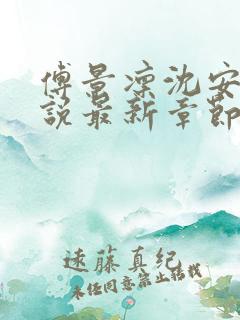 傅景凛沈安
说最新章節
遠藤真纪
未经同意禁止转载